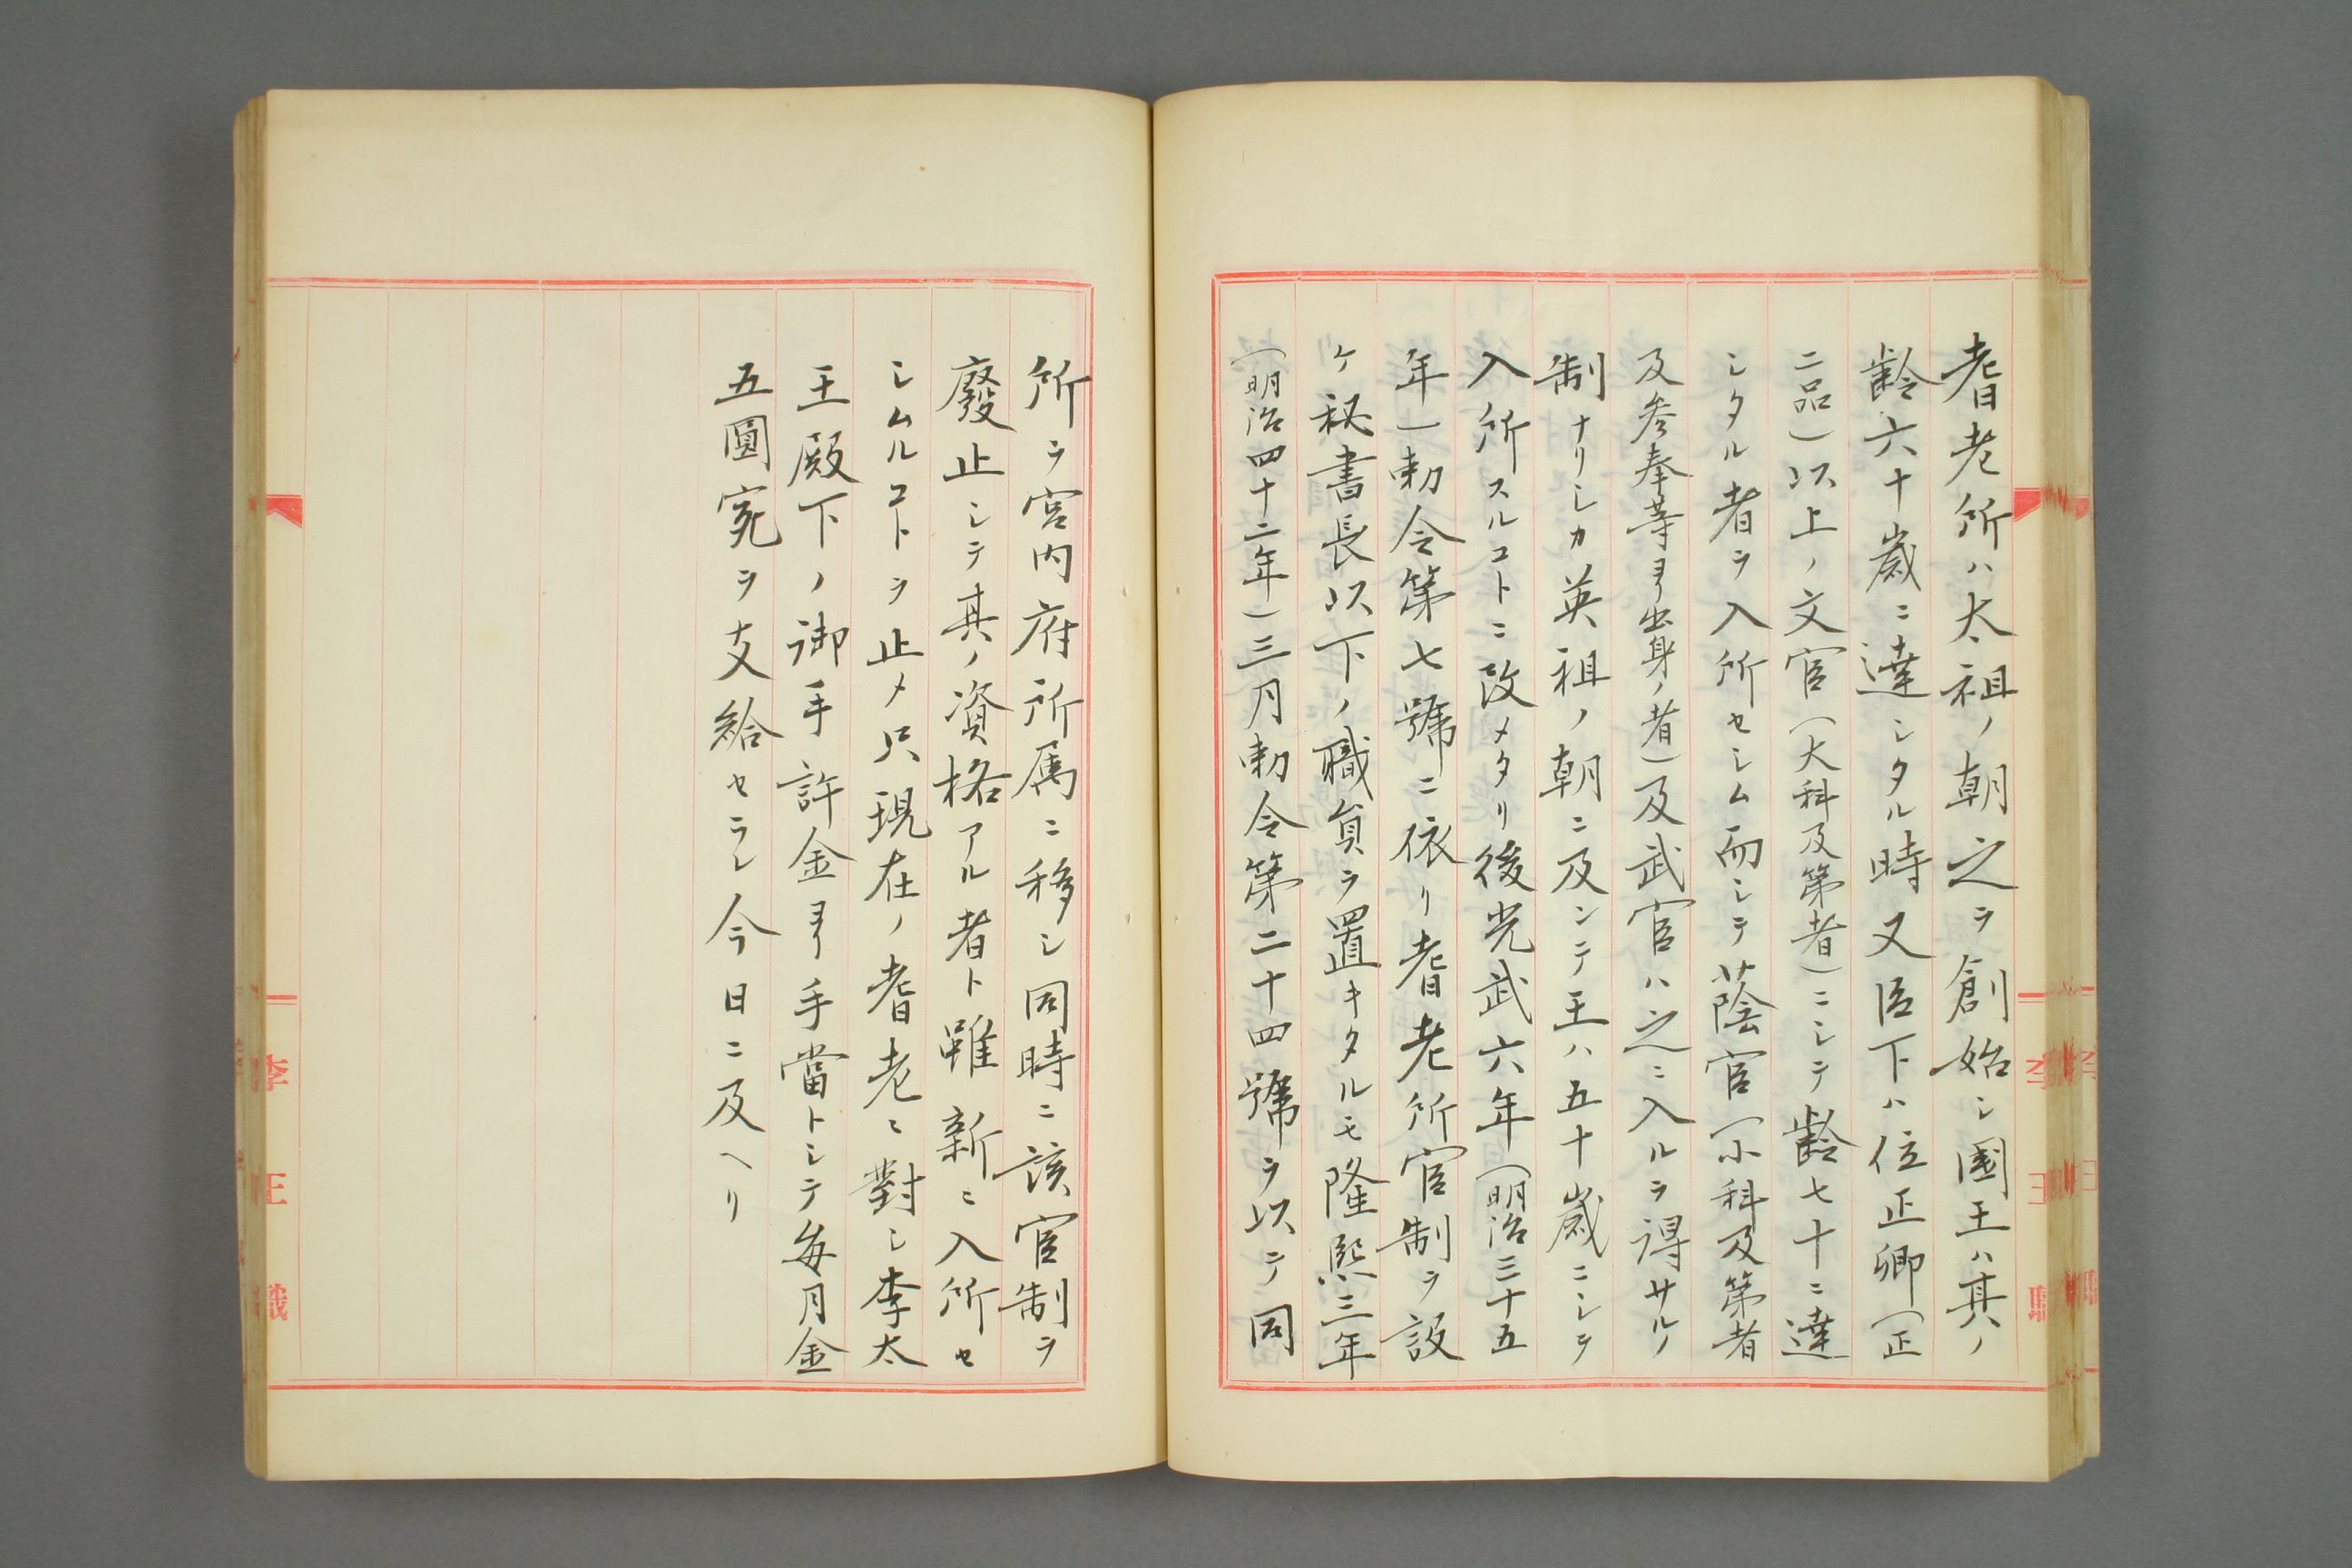 耆老所ハ太祖ノ朝之ヲ創始シ國王ハ其ノ
齡六十歲ニ達シタル時又臣下ハ位正卿(正
二品)以上ノ文官(大科及第者)ニシテ齡七十ニ達
シタル者ヲ入所セシム而シテ蔭官(小科及第者
及參奉等ヨリ出身ノ者)及武官ハ之ニ入ルヲ得サルノ
制ナリシカ英祖ノ朝ニ及ンテ王ハ五十歲ニシテ
入所スルコトニ改メタリ後光武六年(明治三十五
年)勅令第七號ニ依リ耆老所官制ヲ設
ケ秘書長以下ノ職員ヲ置キタルモ隆熙三年
(明治四十二年)三月勅令第二十四號ヲ以テ同
所ヲ宮内府所属ニ移シ同時ニ該官制ヲ
廢止シテ其ノ資格アル者ト雖新ニ入所セ
シムルコトヲ止メ只現在ノ耆老ニ對シ李太
王殿下ノ御手許金ヨリ手當トシテ每月金
五圓宛ヲ支給セラレ今日ニ及ヘリ
李王職